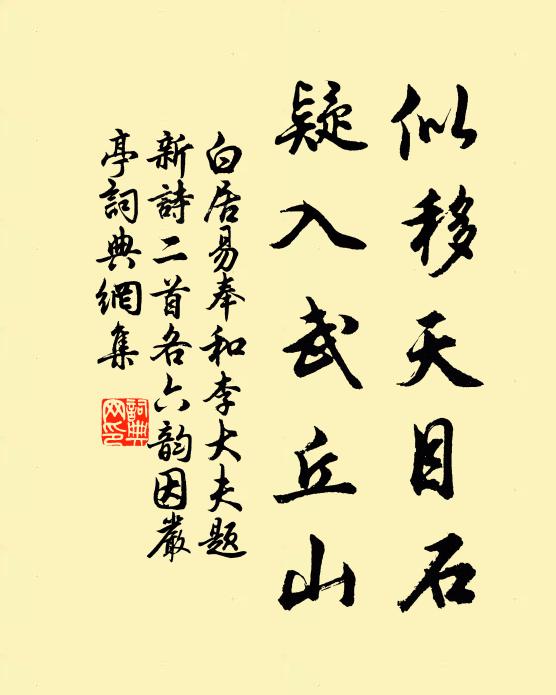 似移天目石
疑入武丘山
白居易奉和李大夫题
新詩二首各六韵因嚴
亭詞典網集
詞典网印